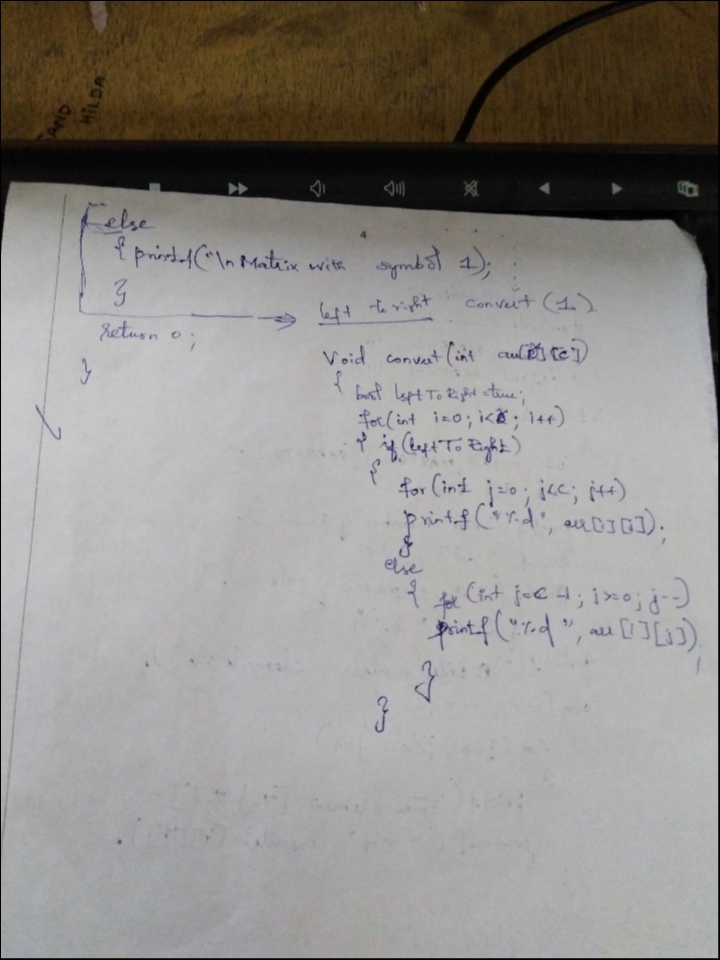 SAND
HILDA
4
else
{ printf("\n Matrix with symbol 1);
}
left to right convert (1).
return 0;
}
Void convert(int arr[R][C])
{ bool leftToRight = true;
for(int i=0; i<R; i++)
{ if (leftToRight)
{
for(int j=0; j<C; j++)
printf("%d", arr[i][j]);
}
else
{ for (int j=C-1; j>=0; j--)
printf("%d ", arr[i][j]);
}
}